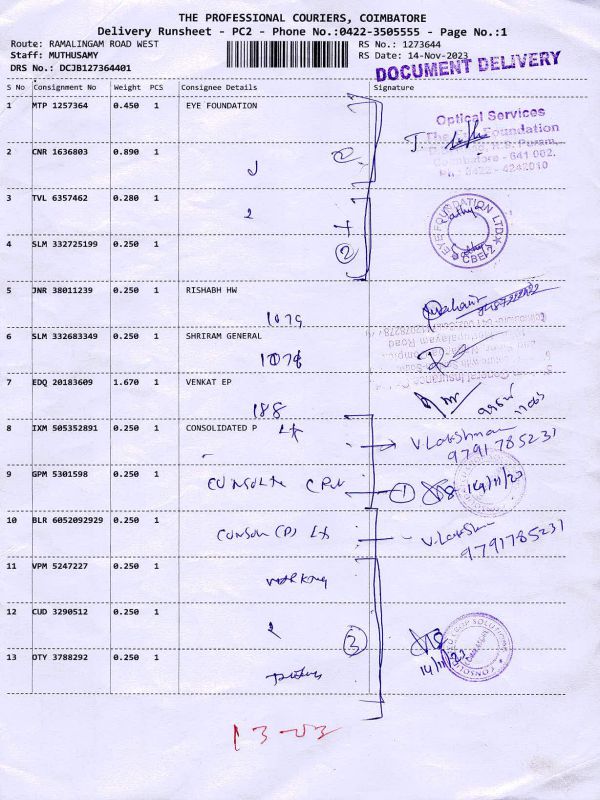 THE PROFESSIONAL COURIERS, COIMBATORE
Delivery Runsheet - PC2 - Phone No.:0422-3505555 - Page No.:1
Route: RAMALINGAM ROAD WEST
RS No.: 1273644
Staff: MUTHUSAMY
RS Date: 14-Nov-2023
DRS No.: DCJB127364401
DOCUMENT DELIVERY
S No Consignment No Weight PCS Consignee Details Signature
1 MTP 1257364 0.450 1 EYE FOUNDATION
Optical Services
The Eye Foundation
Coimbatore - 641 002.
Ph: 0422 - 4242010
2 CNR 1636803 0.890 1
3 TVL 6357462 0.280 1
2
EYE FOUNDATION LTD
CBE-2
4 SLM 332725199 0.250 1
2
5 JNR 38011239 0.250 1 RISHABH HW
1079
6 SLM 332683349 0.250 1 SHRIRAM GENERAL
1078
7 EDQ 20183609 1.670 1 VENKAT EP
188
8 IXM 505352891 0.250 1 CONSOLIDATED P
V. Lakshman
9791785231
9 GPM 5301598 0.250 1
1
14/11/23
10 BLR 6052092929 0.250 1
V. Lakshman
9791785231
11 VPM 5247227 0.250 1
12 CUD 3290512 0.250 1
3
14/11/23
13 DTY 3788292 0.250 1
13-03